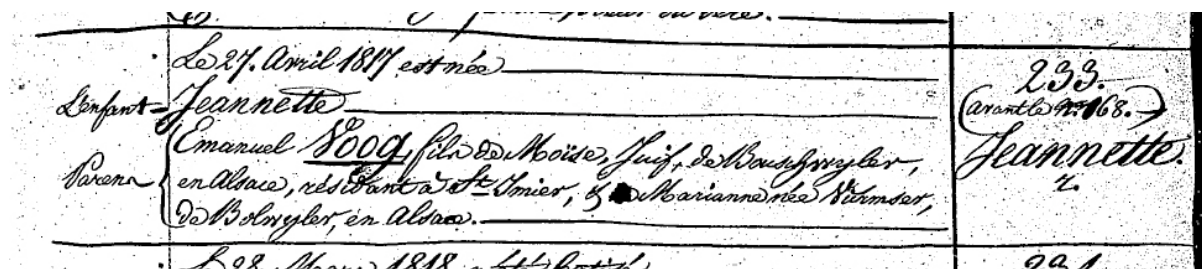 Le 27. Avril 1817 est née
L'enfant Jeannette
Parens Emanuel Voog, fils de Moïse, Juif, de Bouschwyler,
en Alsace, résidant à St. Imier, & de Marianne née Würmser,
de Bolwyler, en Alsace.
233.
(avant le No. 168.)
Jeannette.
Le 28. Mars 1818 a été
234